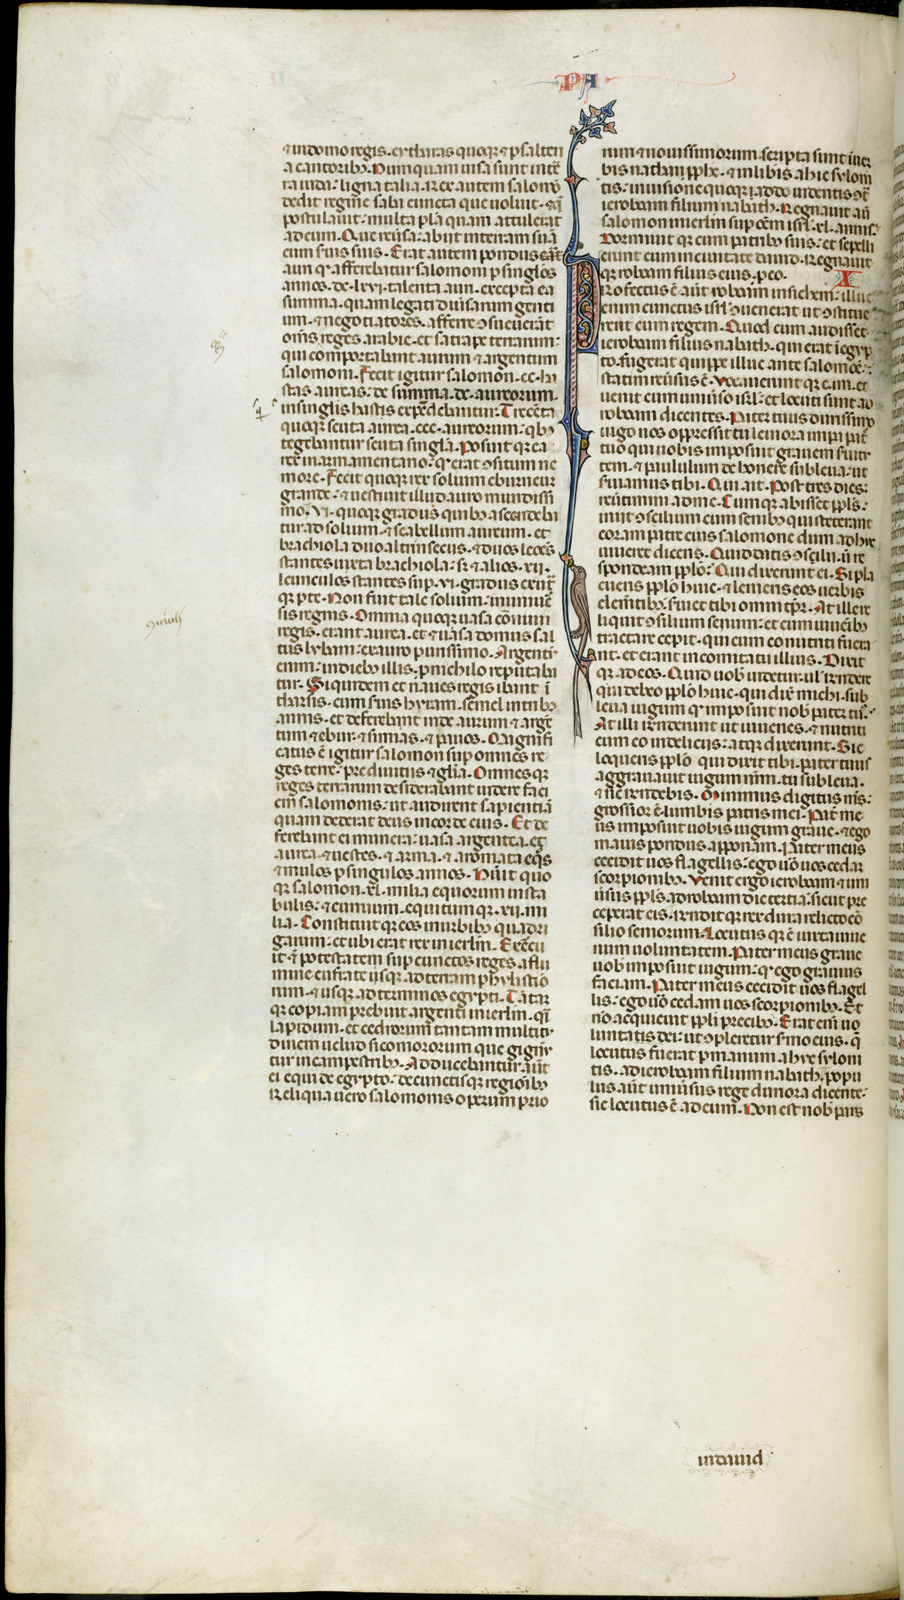 PA
& in domo regis. cytharas quoq; & psalteri
a cantorib;. Numquam uisa sunt in t̄
ra iuda: ligna talia. Rex autem salomō
dedit regine saba cuncta que uoluit. & q̄
postulauit: multa pl̄a quam attulerat
ad eum. Que reūsa: abiit in terram suā
cum suis suis. Erat autem pondus
auri qḋ afferebatur salomoni ꝑ singlos
annos. dc. lxvi. talenta auri. excepta ea
summa. quam legati diuisarum genti
um. & negotiatores. afferre ꝯsueuerāt
om̄s reges arabie. et satrape terrarum:
qui comportabant aurum & argentum
salomoni. Fecit igitur salomon. cc. ha
stas aureas: de summa. dc. aureorum.
in singlis hastis expēdebantur. Trecēta
quoq; scuta aurea. ccc. aureorum: qb;
tegebantur scuta singla. Posuit q; ea
rex in armamentario: qḋ erat ꝯsitum ne
more. Fecit quoq; rex solium eburneum
grande: & uestiuit illud auro mundissi
mo. vi. quoq; gradus quib; ascendeba
tur ad solium. & scabellum aureum. et
brachiola duo altrinsecus. & duos leōes
stantes iuxta brachiola: sȝ & alios. xii.
leunculos stantes suꝑ. vi. gradus ex ut̄
q; ꝑte. Non fuit tale solium: in uniuē
sis regnis. Omnia quoq; uasa conuiuii
regis. erant aurea. et & uasa domus sal
tus lybani: ex auro purissimo. Argentū
enim: in dieb; illis. ꝓ nichilo reputaba
tur. Si quidem et naues regis ibant ī
tharsis. cum suis hyram. semel in trib;
annis. et deferebant inde aurum & argē
tum & ebur. & simias. & pauos. Magnifi
catus ē igitur salomon suꝑ omnēs re
ges terre: pre diuitiis & gl̄ia. Omnes q;
reges terrarum desiderabant uidere faci
em salomonis: ut audirent sapientiā
quam dederat deus in corde eius. Et de
ferebant ei munera: uasa argentea. et
aurea. & uestes. & arma. & aromata eq̄s
& mulos ꝑ singulos annos. Habuit quo
q; salomon. xl. milia equorum in sta
bulis: & curruum. equitum q;. xii. mi
lia. Constituit q; eos in urbib; quadri
garum: et ubi erat rex in ierl̄m. Exercu
it & potestatem suꝑ cunctos reges. a flu
mine eufrate usq; ad terram phylistio
rum. & usq; ad terminos egypti. Tātā
q; copiam prebuit argenti in ierl̄m. qⁱ
lapidum. et cedrorum tantam multitu
dinem uelud sicomororum que gignū
tur in campestrib;. Adducebantur aūt
ei equi de egypto. de cunctis q; regionib;
Reliqua uero salomonis operum prio
rum & nouissimorum. scripta sunt in uer
bis nathan ꝓphe. & in libis ahie sylonī
tis: in uisione quoq; iaddo uidentis ꝯt̄
ieroboam filium nabath. Regnauit aū
salomon in ierl̄m suꝑ oēm isrl̄. xl. annis.
Dormiuit q; cum patrib; suis: et sepeli
erunt eum in ciuitate dauid. Regnauit
q; roboam filius eius. ꝓ eo.
X
Profectus ē aūt roboam in sichem: illuc
enim cunctus isrl̄ ꝯuenerat ut ꝯstitue
rent eum regem. Quod cum audisset
ieroboam filius nabath. qui erat ī egyp
to. fugerat quippe illuc ante salomōē:
statim reūsus ē. Vocauerunt q; eum. et
uenit cum uniūso isrl̄: et locuti sunt ad
roboam dicentes. Pater tuus durissimo
iugo nos oppressit tu leuiora impa pat̄
tuo qui nobis imposuit grauem seruitu
tem. & paululum de honere subleua: ut
seruiamus tibi. Qui ait. Post tres dies:
reūtimini ad me. Cum q; abisset ppl̄s:
iniit ꝯsilium cum senib; qui steterant
coram patre eius salomone dum adhuc
uiueret dicens. Quid datis ꝯsilii. ut re
spondeam ppl̄o: Qui dixerunt ei. Si pla
cueris ppl̄o huic. & lenieris eos uerbis
clementib;. seruiet tibi omni tꝑr. At ille re
liquit ꝯsilium senum: et cum iuuēib;
tractare cepit. qui cum eo nutriti fuera
nt. et erant in comitatu illius. Dixit
q; ad eos. Quid uob̄ uidetur. ul̄ r̄ndere
quid debeo ppl̄o huic. qui dix̄ michi. sub
leua iugum qḋ imposuit nob̄ pater tuus.
At illi r̄nderunt ut iuuenes. & nutriti
cum eo in deliciis: atq; dixerunt. Sic
loqueris ppl̄o qui dixit tibi. pater tuus
aggrauauit iugum nr̄m. tu subleua.
& sic r̄ndebis. Minimus digitus ms̄:
grossior ē lumbis patris mei. Pater me
us imposuit uobis iugum graue. & ego
maius pondus apponam. Pater meus
cecidit uos flagellis: ego ūo uos cedam
scorpionib;. Venit ergo ieroboam & uni
ūsus ppl̄s. ad roboam die tertia: sicut pre
ceperat eis. r̄ndit q; rex dura relicto cō
silio seniorum. Locutus q; ē iuxta iuue
num uoluntatem. Pater meus graue
uob̄ imposuit iugum: qḋ ego grauius
faciam. Pater meus cecidit uos flagel
lis: ego ūo cedam uos scorpionib;. Et
nō acquieuit ppl̄i precib;. Erat eni uo
luntatis dei: ut ꝯpleretur sermo eius. q̄
locutus fuerat ꝑ manum ahye syloni
tis. ad ieroboam filium nabath. Popu
lus aūt uniūsus rege duriora dicente:
sic locutus ē ad eum. Non est nob̄ pars
in dauid